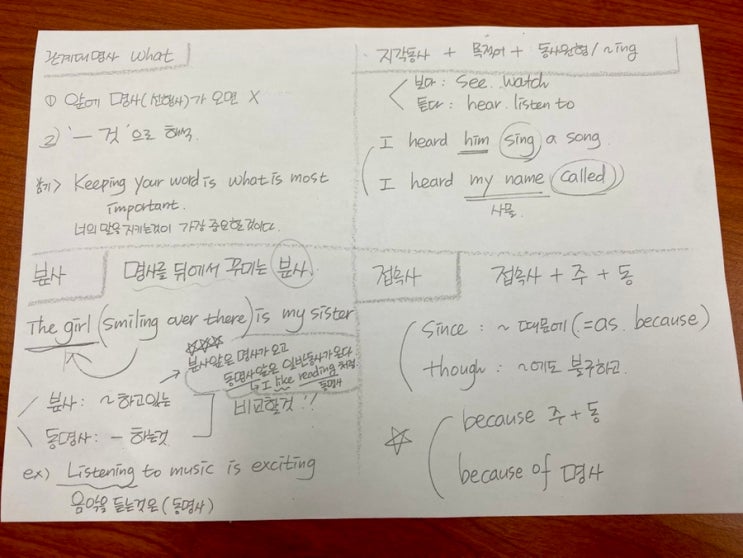 관계대명사 what
① 앞에 명사(선행사)가 오면 X
2) '~ 것'으로 해석.
예> Keeping your word is what is most
important.
너의 말을 지키는것이 가장 중요한것이다.
지각동사 + 목적어 + 동사원형/~ing
보다: see. watch
듣다: hear. listen to
I heard him sing a song.
I heard my name called
사물.
분사
명사를 뒤에서 꾸미는 분사.
The girl (smiling over there) is my sister
☆☆☆
분사앞은 명사가 오고
동명사 앞은 일반동사가 온다
↳ I like reading 처럼.
동명사
분사: ~하고있는
동명사: ~ 하는것
비교할것!!
ex) Listening to music is exciting
음악을 듣는것은 (동명사)
접속사
접속사 + 주 + 동
Since: ~ 때문에 (=as. because)
though: ~에도 불구하고.
☆
because 주+동
because of 명사